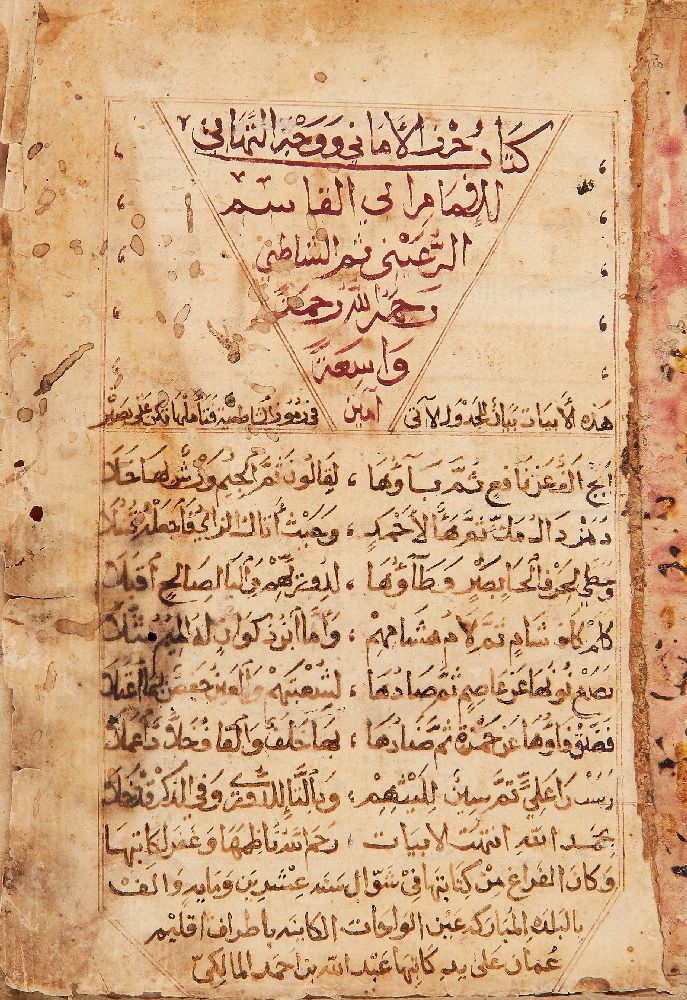 كتاب حرز الأماني ووجه التهاني
للإمام أبي القاسم
الرعيني ثم الشاطبي
رحمه الله رحمة
واسعة
آمين
هذه الأبيات بيان الجدول الآتي في رموز الشاطبية فتأملها تكن على بصير
ابج الف عن نافع ثم باؤها ، لقالون ثم الجيم ورش لها حلا
دهز دال مك ثم ها لاحمد ، وحيث أتاك الزاي فاجعله
حطي الحرف الحا بصر وطاؤها ، لدور لهم واليا لصالح أقبلا
كلم كاف شام ثم لام هشامهم ، وأما ابن ذكوان له الميم مثلا
نصع نونها عن عاصم ثم صادها ، لشعبتهم والعين حفص
فضق فاؤها عن حمزة ثم ضادها ، لها خلف والقاف خلاد
رست را علي ثم سين لليثهم ، وبالتا للدوري وفي الذكر قد خلا
بحمد الله انتهت الابيات ، رحم الله ناظمها وغفر لكاتبها
وكان الفراغ من كتابتها في شوال سنه عشرين ومايه والف
بالبلده المباركه عين الواحات الكاينه باطراف اقليم
عمان على يد كاتبها عبد الله بن احمد المالكي